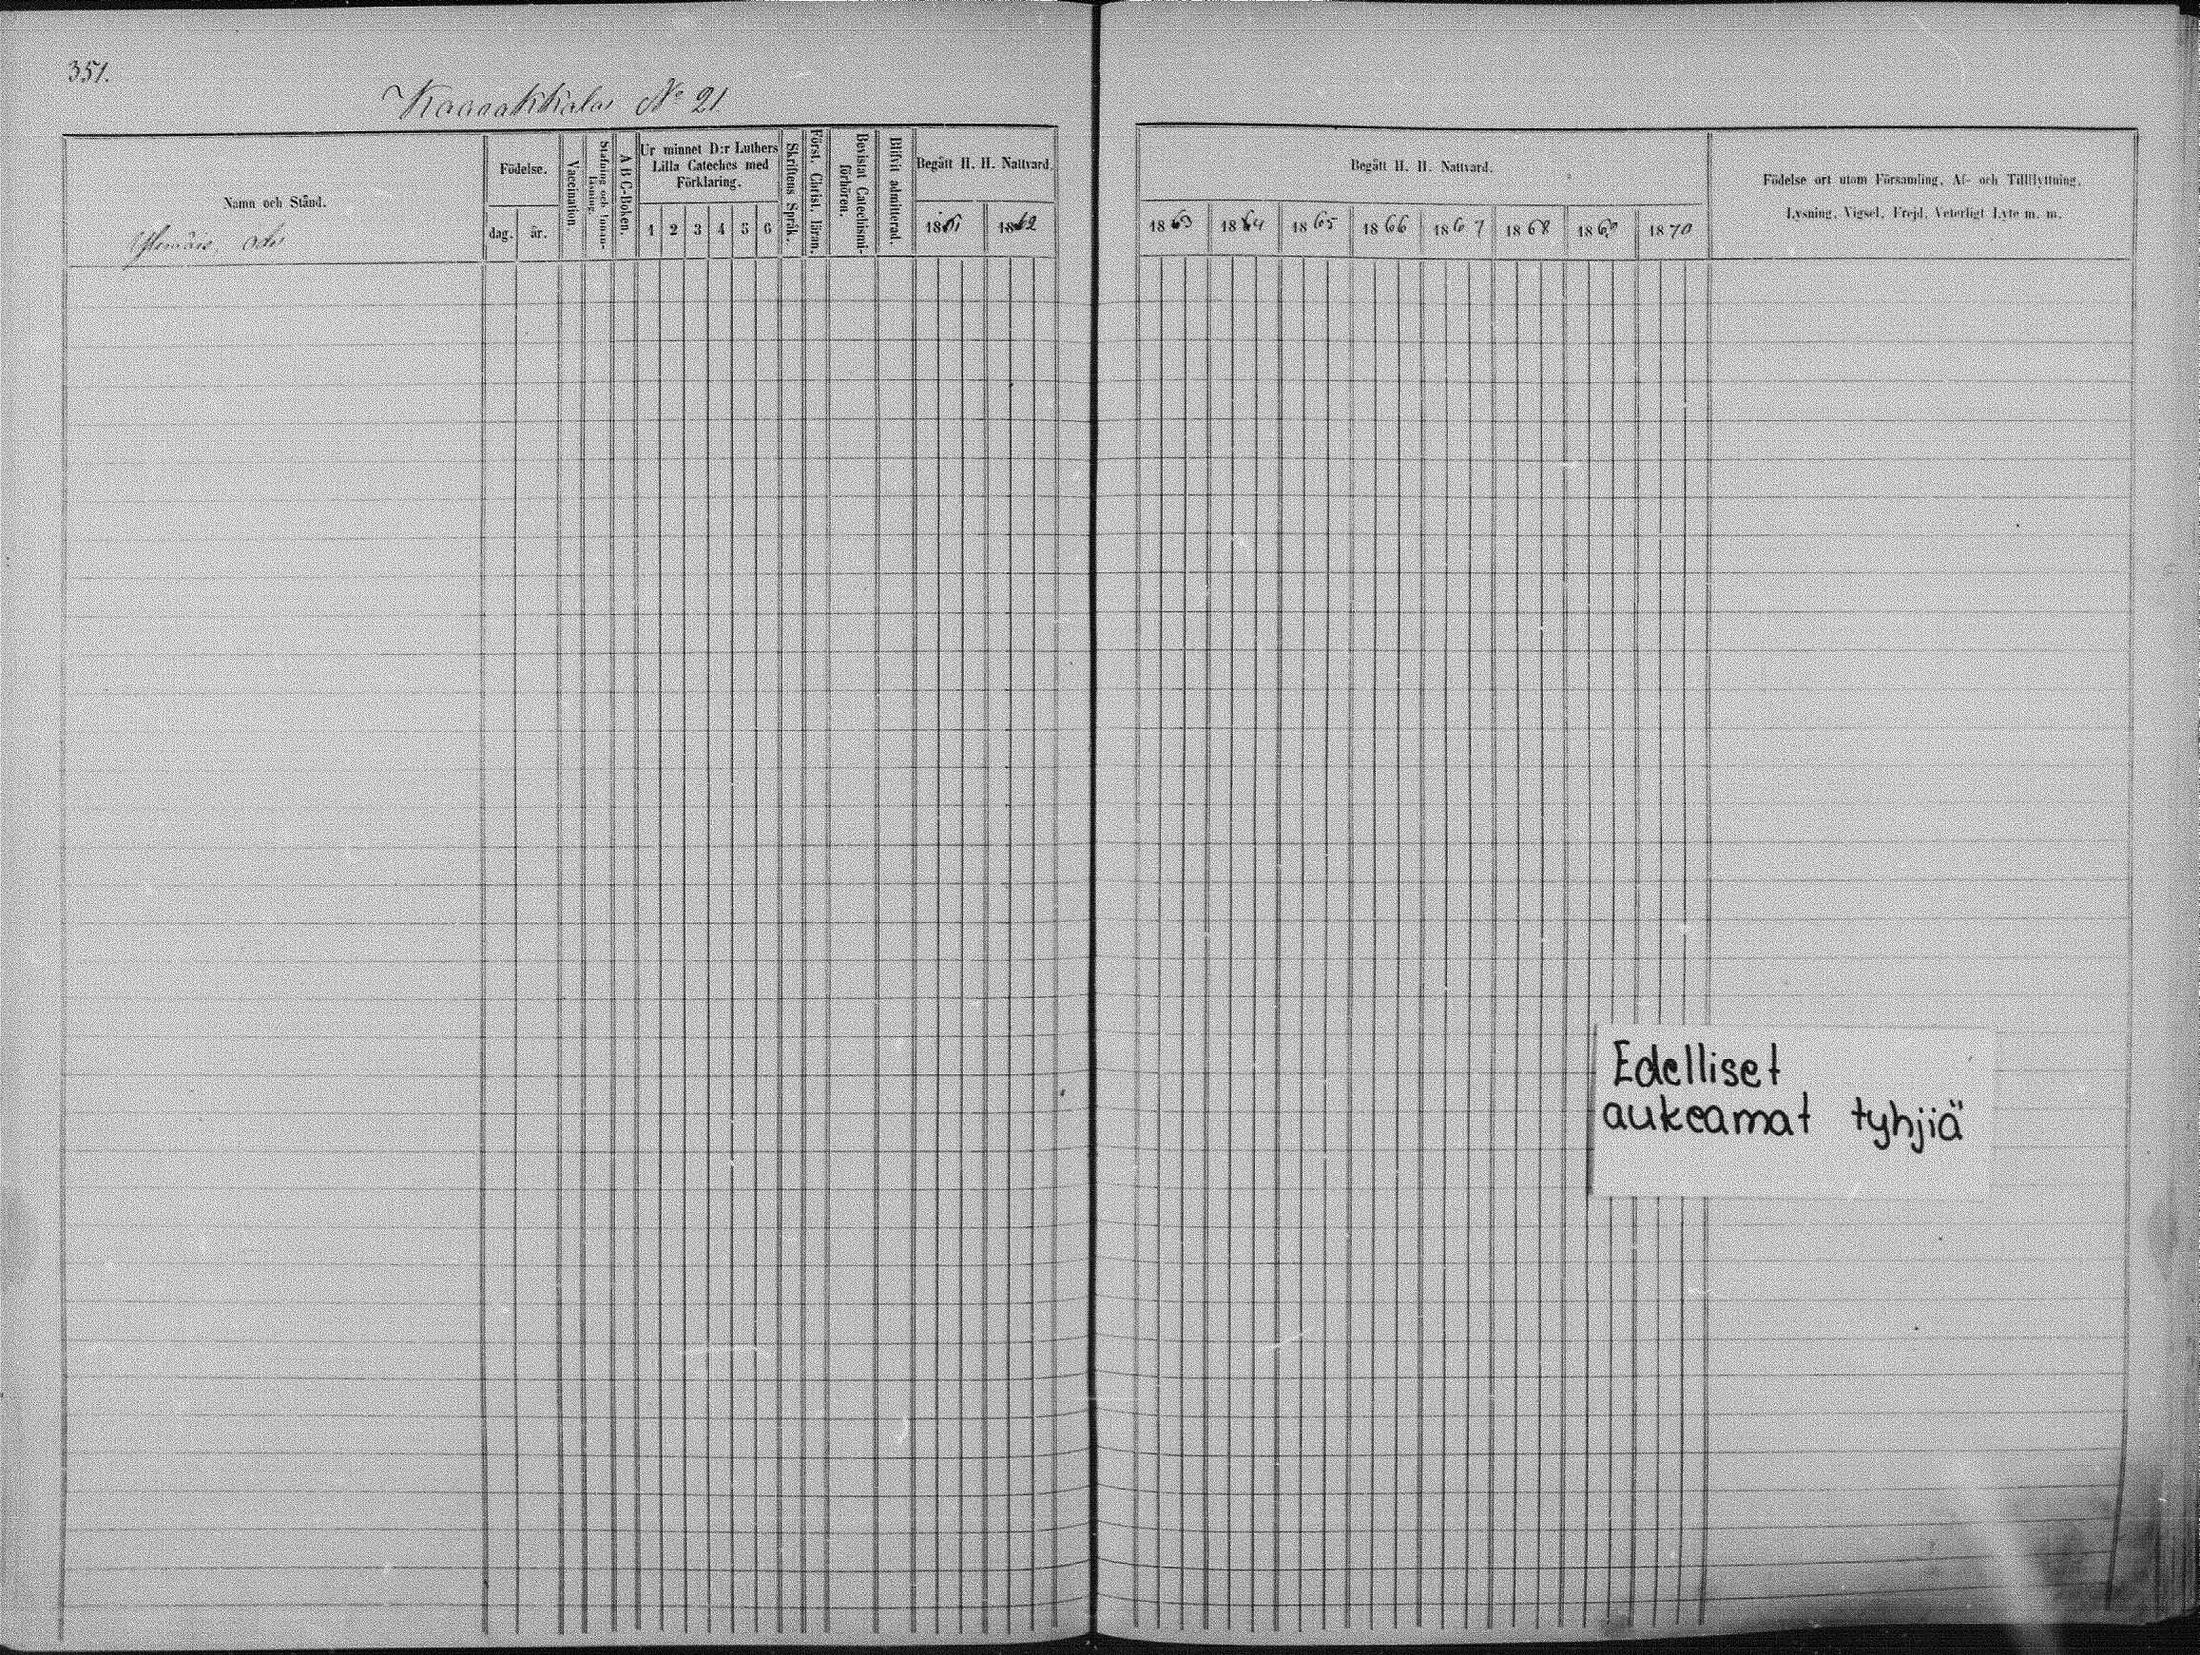 351.
No 21
Namn och Stånd.
Födelse.
dag.
år.
Vaccination.
Stafning och Innanläsning.
A B C-Boken.
Ur minnet D:r Luthers
Lilla Cateches med
Förklaring.
1 2 3 4 5 6
Skriftens Språk.
Först. Christ. läran.
Bevistat Catechismi-
förhören.
Blifvit admitterad.
Begått H. H. Nattvard.
1861 1862
Begått H. H. Nattvard.
1863 1864 1865 1866 1867 1868 1869 1870
Födelse ort utom Församling, Af- och Tillflyttning,
Lysning, Vigsel, Frejd, Veterligt Lyte m. m.
Edelliset
aukeamat tyhjiä